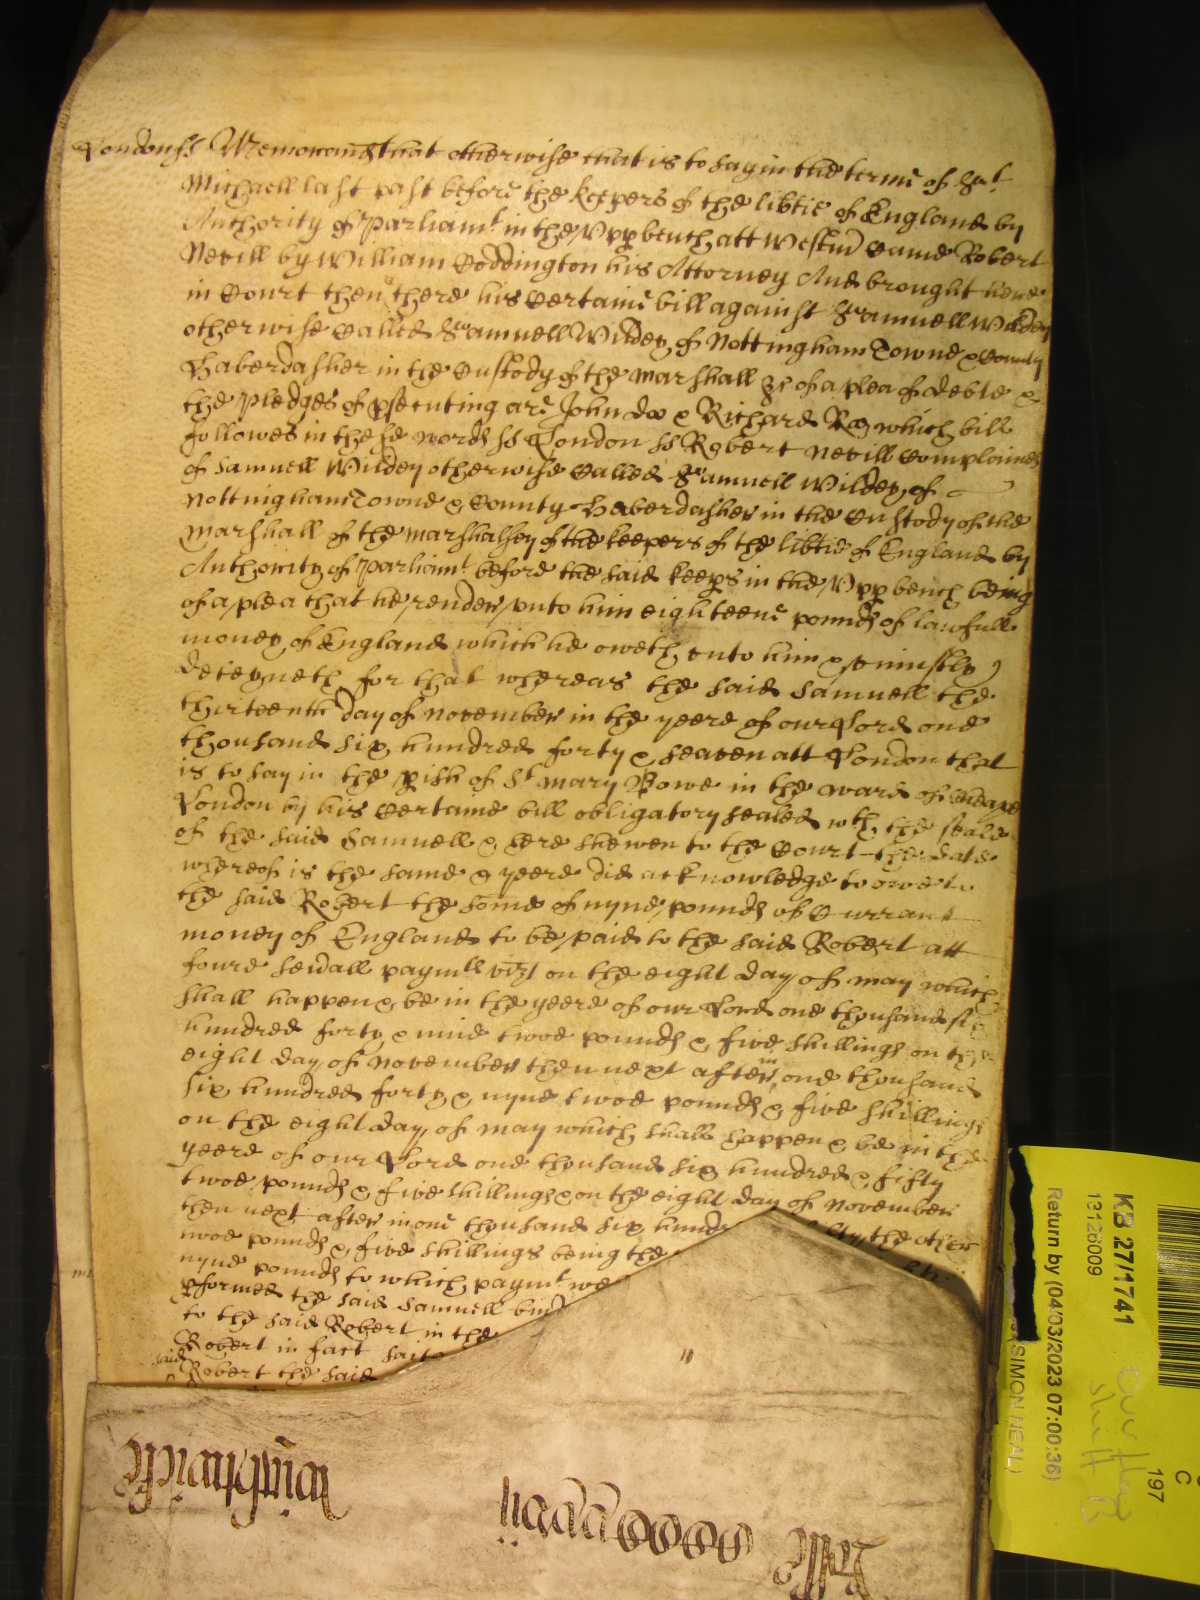 London ss Memorand that otherwise that is to say in the terme of St
Michaell last past before the keepers of the libtie of England by
Authority of Parliamt in the Upp bench att Westm Came Robert
Nevill by William Coddington his Attorney And brought here
in Court then there his Certaine bill against Samuell Wildey
otherwise Called Samuell Wildey of Nottingham Towne & County
Haberdasher in the Custody of the marshall &c of a plea of debte &
the pledges of psecuting are John doo & Richard Roo which bill
followes in these words ss London ss Robert Nevill Complaines
of Samuell Wildey otherwise Called Samuell Wildey of
Nottingham Towne & County Haberdasher in the Custody of the
Marshall of the marshalsey of the keepers of the libtie of England by
Authority of Parliamt before the said keeps in the Upp bench being
of a plea that he render unto him eighteene pounds of lawfull
money of England which he oweth unto him & iniustly
deteyneth for that whereas the said Samuell the
thirteenth day of November in the yeere of our Lord one
thousand six hundred forty & seaven att London that
is to say in the pish of St Mary Bowe in the ward of Cheape
London by his Certaine bill obligatory sealed wth the seale
of the said Samuell & here shewen to the Court the date
whereof is the same & yeere did acknowledge to owe to
the said Robert the some of nyne pounds of Currant
money of England to be paid to the said Robert att
foure sevall paymts vizt on the eight day of may which
shall happen & be in the yeere of our Lord one thousand six
hundred forty & nine twoe pounds & five shillings on the
eight day of November then next after in one thousand
six hundred forty & nyne twoe pounds & five shillings
on the eight day of may which shall happen & be in the
yeere of our Lord one thousand six hundred & fifty
twoe pounds & five shillings & on the eight day of November
then next after in one thousand six hundr fifty the other
twoe pounds & five shillings being the
nyne pounds to which paymt we
pformed the said Samuell bind
to the said Robert in the
Robert in fact saith
said Robert the said
KB 27/1741
13126009
Return by (04/03/2023 07:00:36)
(SIMON NEAL)
C
197